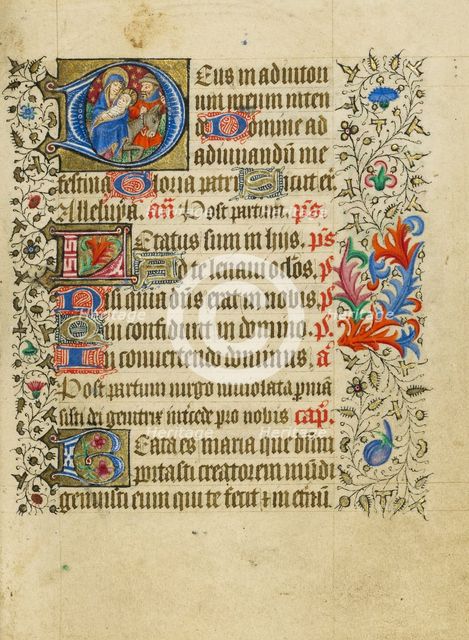 Deus in adiutori
um meum inten
Domine ad
adiuuandum me
festina Gloria patri Sicut er
Alleluya. añ Post partum. ps
Letatus sum in hijs. ps
Ad te leuaui oclos. p
Nisi quia dñs erat in nobis. p
Qui confidunt in domino. p
In conuertendo dominus. a
Post partum uirgo inuiolata permā
sisti dei genitrix intercede pro nobis cap.
Beata es maria que dñm
portasti creatorem mūdi
genuisti eum qui te fecit et in eternū
Heritage